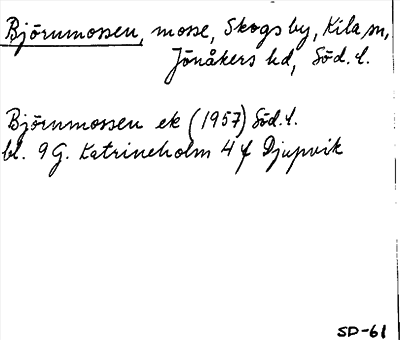 Björnmossen, mosse, Skogsby, Kila sn,
Jönåkers hd, Söd. l.
Björnmossen ek (1957) Söd. l.
bl. 9G. Katrineholm 4 f Djupvik
SD-61